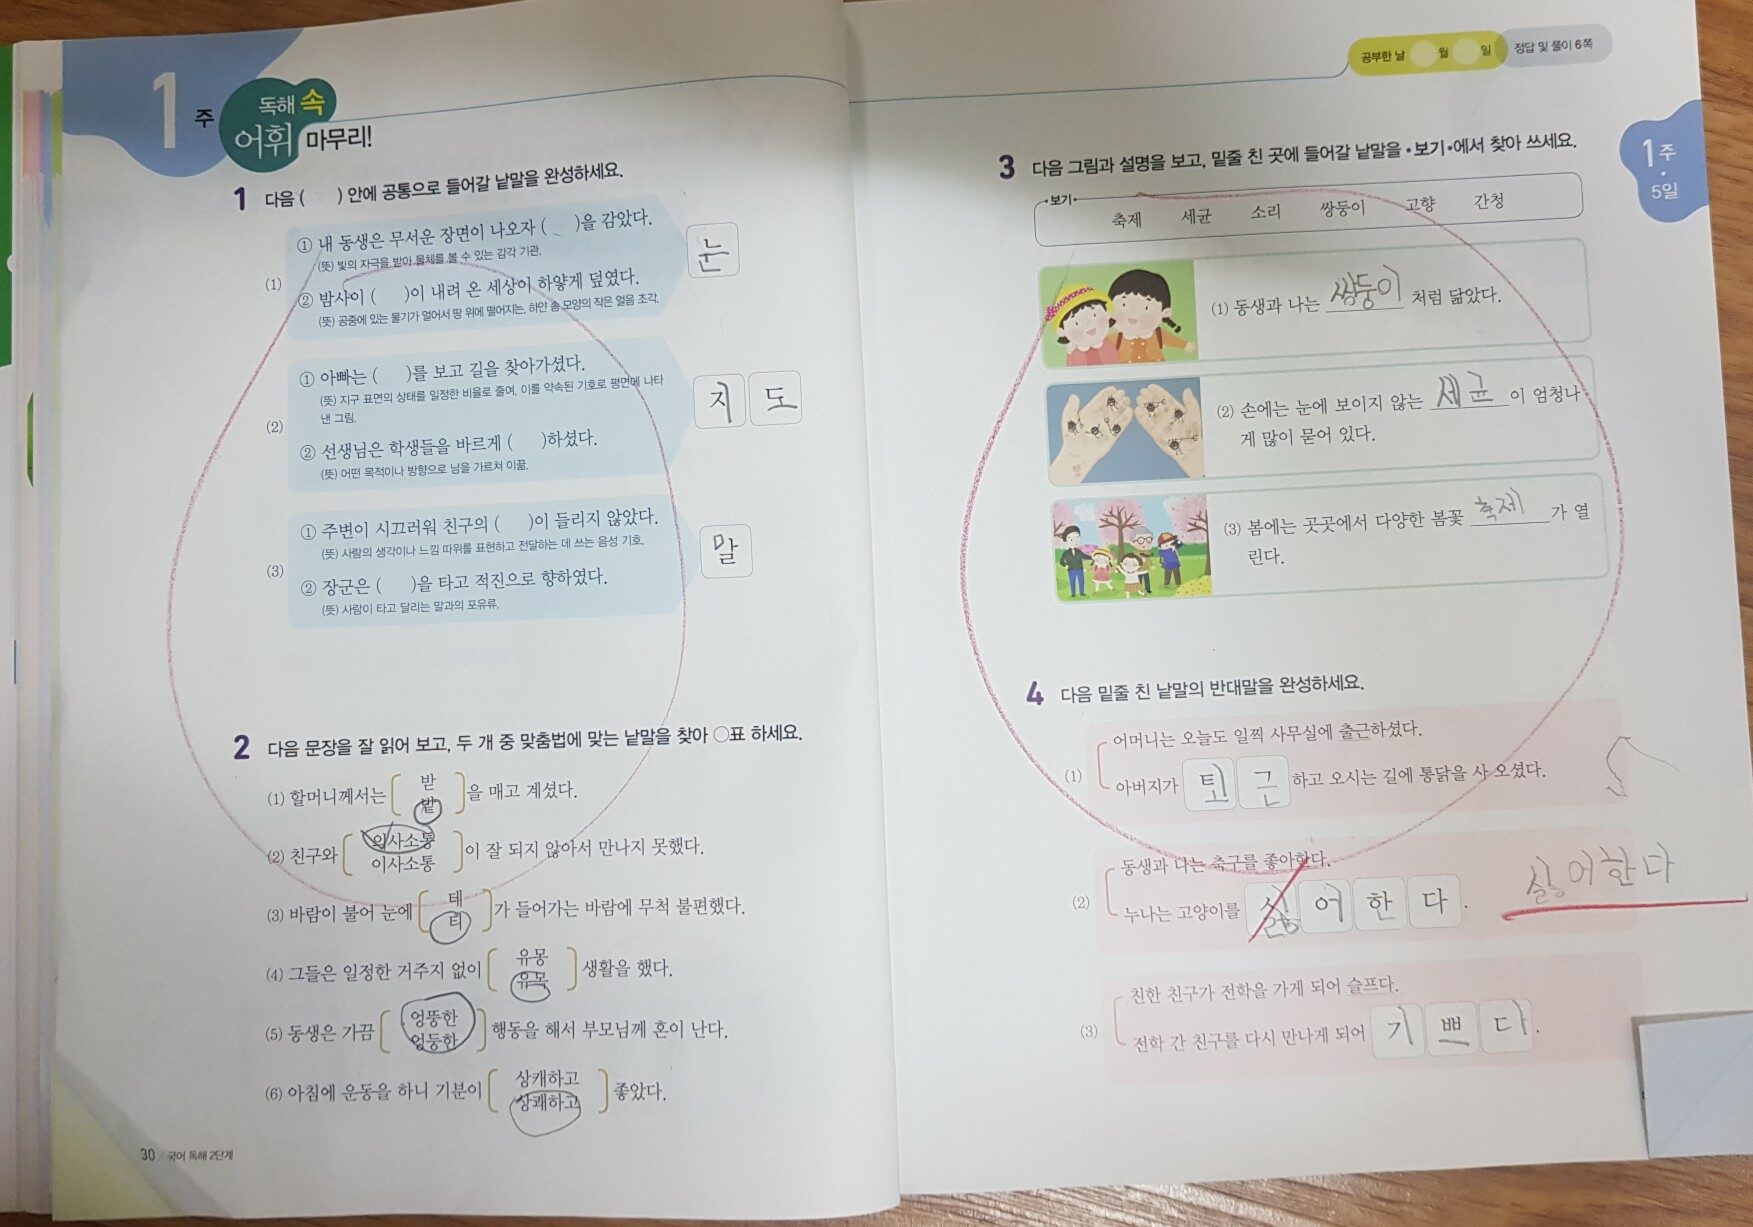 1주
독해 속
어휘 마무리!
1 다음 ( ) 안에 공통으로 들어갈 낱말을 완성하세요.
(1)
① 내 동생은 무서운 장면이 나오자 ( )을 감았다.
(뜻) 빛의 자극을 받아 물체를 볼 수 있는 감각 기관.
② 밤사이 ( )이 내려 온 세상이 하얗게 덮였다.
(뜻) 공중에 있는 물기가 얼어서 땅 위에 떨어지는, 하얀 솜 모양의 작은 얼음 조각.
눈
(2)
① 아빠는 ( )를 보고 길을 찾아가셨다.
(뜻) 지구 표면의 상태를 일정한 비율로 줄여, 이를 약속된 기호로 평면에 나타
낸 그림.
② 선생님은 학생들을 바르게 ( )하셨다.
(뜻) 어떤 목적이나 방향으로 남을 가르쳐 이끎.
지 도
(3)
① 주변이 시끄러워 친구의 ( )이 들리지 않았다.
(뜻) 사람의 생각이나 느낌 따위를 표현하고 전달하는 데 쓰는 음성 기호.
② 장군은 ( )을 타고 적진으로 향하였다.
(뜻) 사람이 타고 달리는 말과의 포유류.
말
2 다음 문장을 잘 읽어 보고, 두 개 중 맞춤법에 맞는 낱말을 찾아 ○표 하세요.
(1) 할머니께서는 [ 받 밭 ]을 매고 계셨다.
(2) 친구와 [ 의사소통 이사소통 ]이 잘 되지 않아서 만나지 못했다.
(3) 바람이 불어 눈에 [ 테 티 ]가 들어가는 바람에 무척 불편했다.
(4) 그들은 일정한 거주지 없이 [ 유몽 유목 ] 생활을 했다.
(5) 동생은 가끔 [ 엉뚱한 엉둥한 ] 행동을 해서 부모님께 혼이 난다.
(6) 아침에 운동을 하니 기분이 [ 상캐하고 상쾌하고 ] 좋았다.
30 / 국어 독해 2단계
공부한 날 월 일 정답 및 풀이 6쪽
1주
5일
3 다음 그림과 설명을 보고, 밑줄 친 곳에 들어갈 낱말을 •보기•에서 찾아 쓰세요.
•보기•
축제 세균 소리 쌍둥이 고향 간청
(1) 동생과 나는 쌍둥이 처럼 닮았다.
(2) 손에는 눈에 보이지 않는 세균 이 엄청나
게 많이 묻어 있다.
(3) 봄에는 곳곳에서 다양한 봄꽃 축제 가 열
린다.
4 다음 밑줄 친 낱말의 반대말을 완성하세요.
(1)
어머니는 오늘도 일찍 사무실에 출근하셨다.
아버지가 퇴 근 하고 오시는 길에 통닭을 사 오셨다.
(2)
동생과 나는 축구를 좋아한다.
누나는 고양이를 어 한 다.
싫어한다
(3)
친한 친구가 전학을 가게 되어 슬프다.
전학 간 친구를 다시 만나게 되어 기 쁘 다.